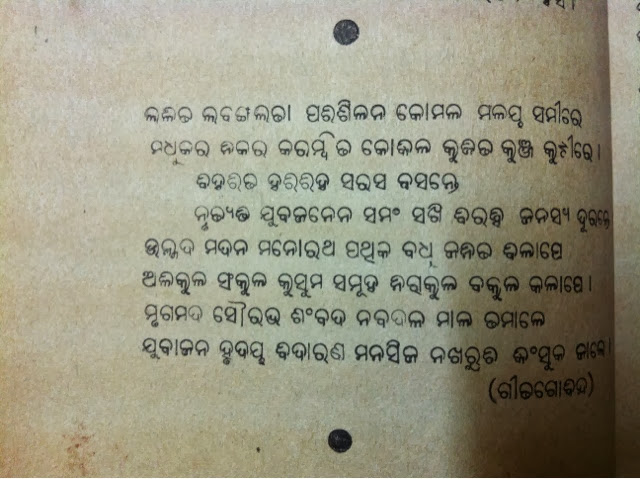 ଲଳିତ ଲବଙ୍ଗଲତା ପରିଶିଳନ କୋମଳ ମଳୟ ସମୀରେ
ମଧୁକର ନିକର କରମ୍ବିତ କୋକିଳ କୁଜିତ କୁଞ୍ଜ କୁଟୀରେ।
ବିହରତି ହରିରିହ ସରସ ବସନ୍ତେ
ନୃତ୍ୟତି ଯୁବଜନେନ ସମଂ ସଖି ବିରହି ଜନସ୍ୟ ଦୁରନ୍ତେ
ଉନ୍ମଦ ମଦନ ମନୋରଥ ପଥିକ ବଧୂ ଜନିତ ବିଳାପେ
ଅଳିକୁଳ ସଂକୁଳ କୁସୁମ ସମୂହ ନିରାକୁଳ ବକୁଳ କଳାପେ।
ମୃଗମଦ ସୌରଭ ଶଂବଦ ନବଦଳ ମାଳ ତମାଳେ
ଯୁବାଜନ ହୃଦୟ ବିଦାରଣ ମନସିଜ ନଖରୁଚି କିଂସୁକ ଜାଲେ।
(ଗୀତଗୋବିନ୍ଦ)